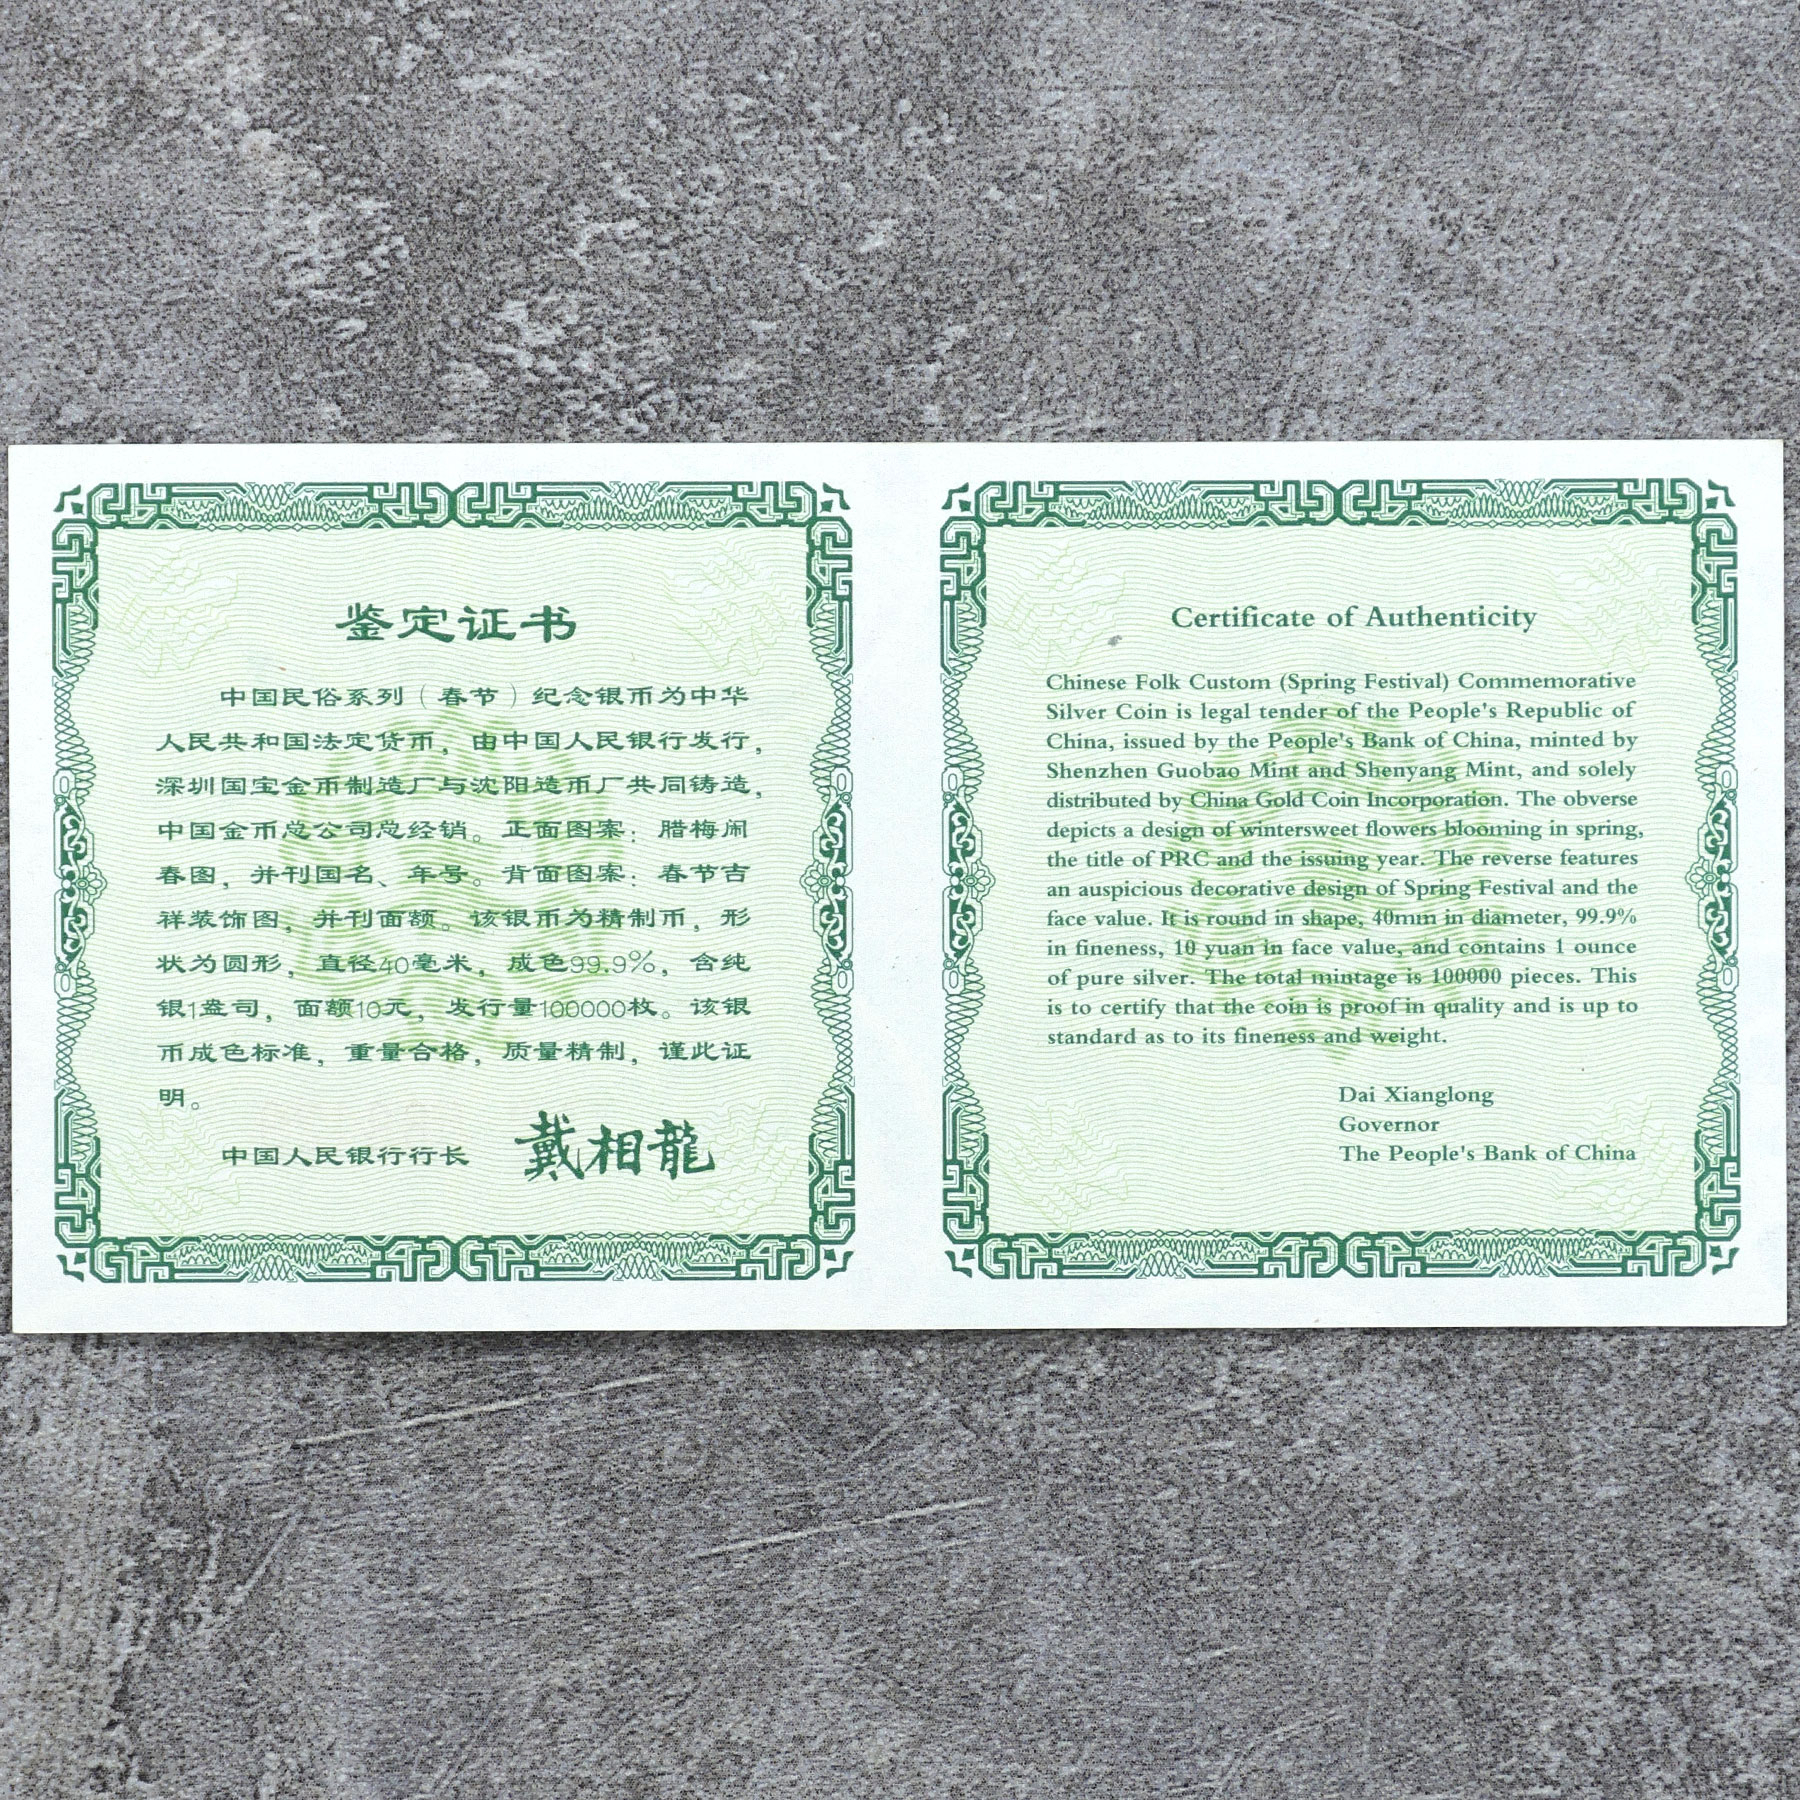 鉴定证书
中国民俗系列（春节）纪念银币为中华
人民共和国法定货币，由中国人民银行发行，
深圳国宝金币制造厂与沈阳造币厂共同铸造，
中国金币总公司总经销。正面图案：腊梅闹
春图，并刊国名、年号。背面图案：春节吉
祥装饰图，并刊面额。该银币为精制币，形
状为圆形，直径40毫米，成色99.9%，含纯
银1盎司，面额10元，发行量100000枚。该银
币成色标准，重量合格，质量精制，谨此证
明。
中国人民银行行长 戴相龍
Certificate of Authenticity
Chinese Folk Custom (Spring Festival) Commemorative
Silver Coin is legal tender of the People's Republic of
China, issued by the People's Bank of China, minted by
Shenzhen Guobao Mint and Shenyang Mint, and solely
distributed by China Gold Coin Incorporation. The obverse
depicts a design of wintersweet flowers blooming in spring,
the title of PRC and the issuing year. The reverse features
an auspicious decorative design of Spring Festival and the
face value. It is round in shape, 40mm in diameter, 99.9%
in fineness, 10 yuan in face value, and contains 1 ounce
of pure silver. The total mintage is 100000 pieces. This
is to certify that the coin is proof in quality and is up to
standard as to its fineness and weight.
Dai Xianglong
Governor
The People's Bank of China